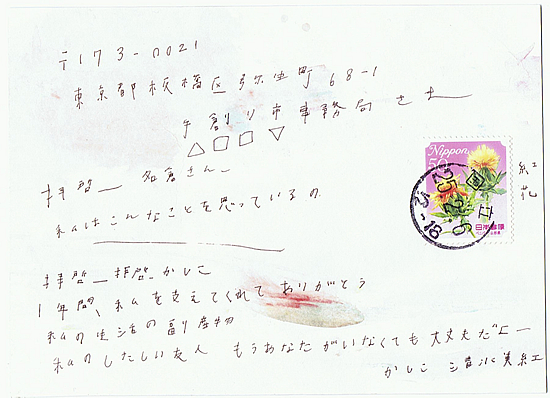 〒173-0021
東京都板橋区弥生町68-1
手創り市事務局さま
△□□▽
拝啓— 名倉さん—
私はこんなことを思っているの
拝啓— 拝啓、かしこ
1年間、私を支えてくれて ありがとう
私の生活の副産物
私のしたしい友人 もうあなたがいなくても大丈夫だよー
かしこ 美紅
Nippon
50
国立
25.2.6
18
日本郵便
紅花